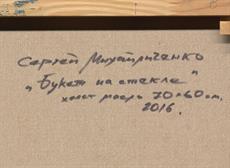 Сергей Михайличенко
"Букет на стекле"
холст масло 70×60см.
2016.